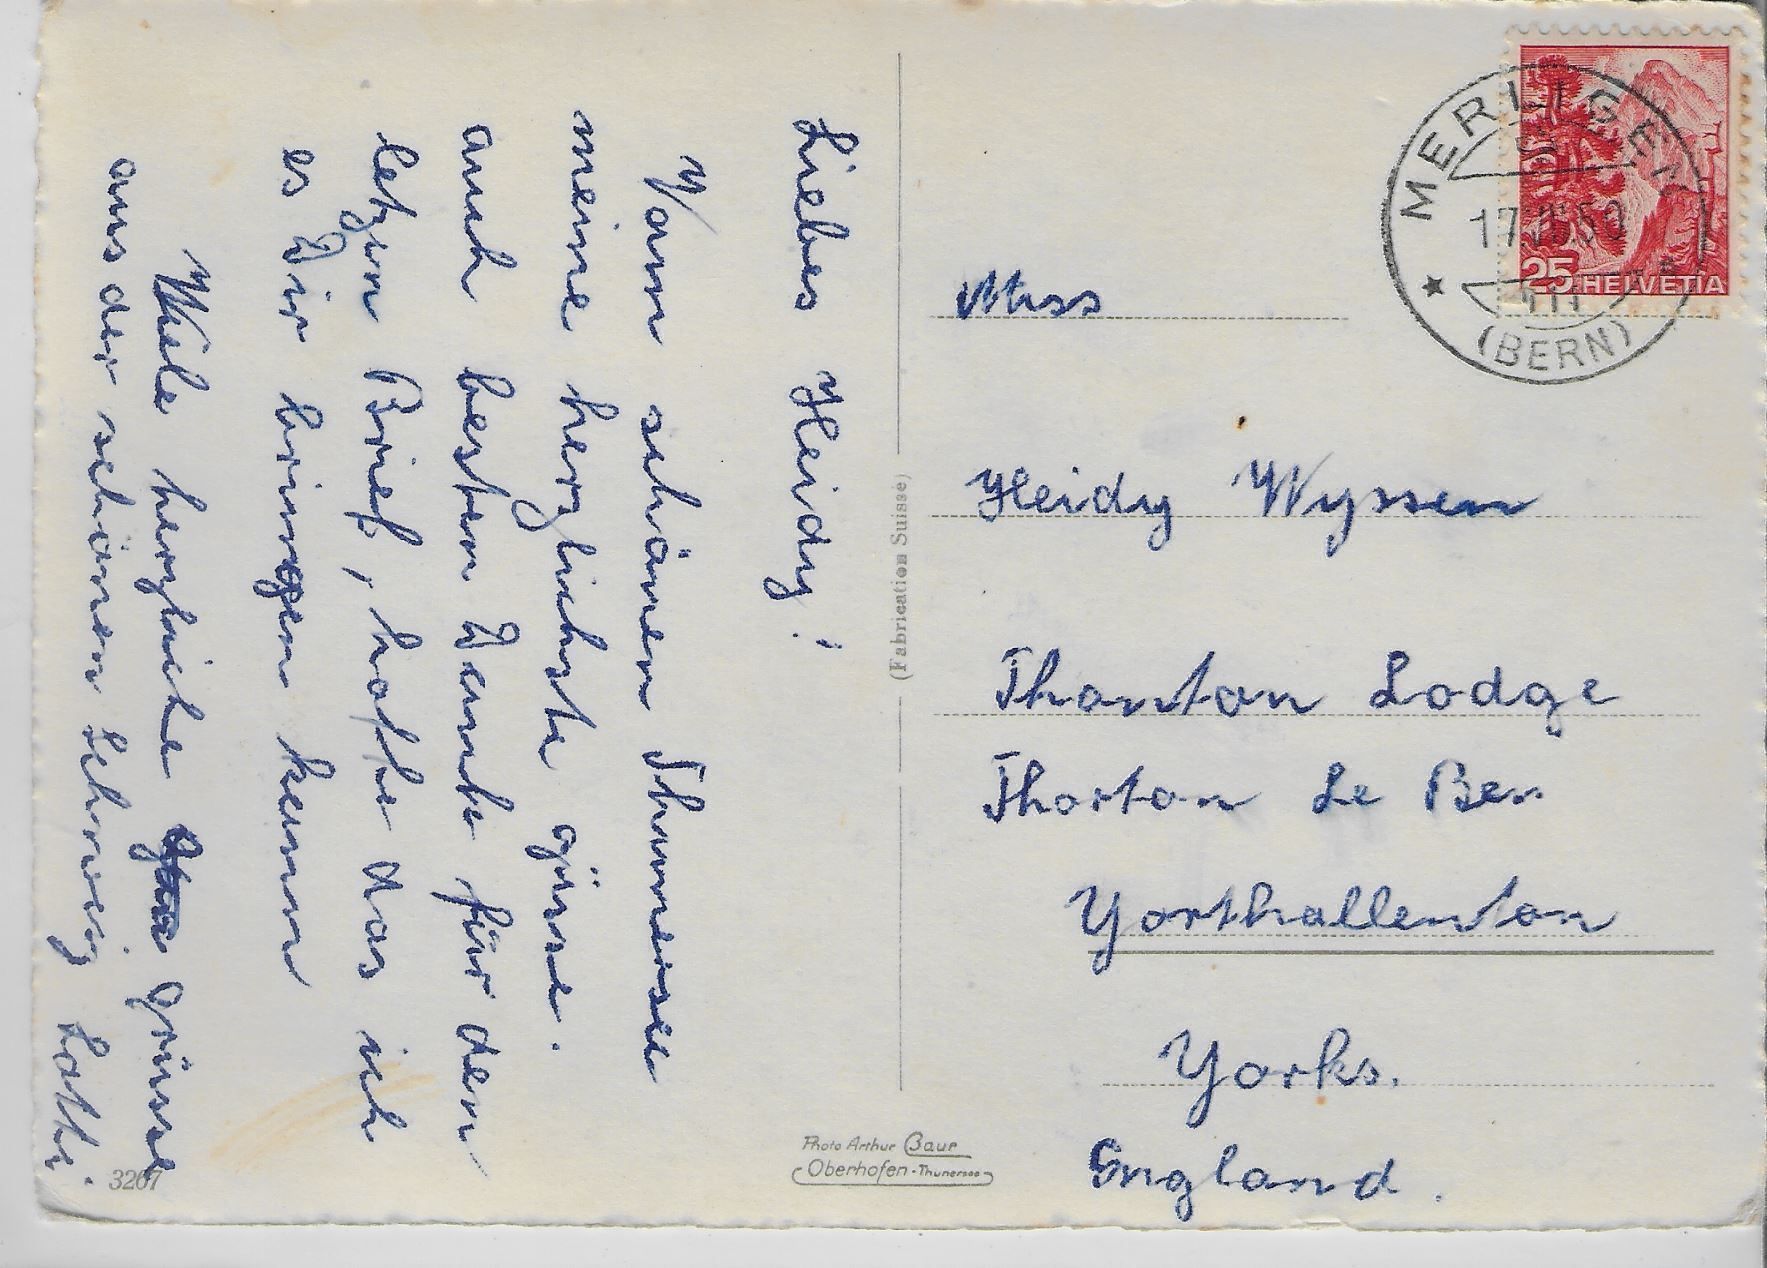 Liebes Heidy!
Vom schönen Thunersee
meine herzlichste grüsse.
auch besten Dank für den
letzten Brief, hoffe das ich
es Dir bringen kann
Viele herzliche grüsse
aus der schönen Schweiz Lotti.
3267
(Fabrication Suisse)
Photo Arthur Baur
Oberhofen-Thunersee
MERLIGEN
17. 50
(BERN)
25 HELVETIA
Miss
Heidy Wyssen
Thonton Lodge
Thorton Le Ben
Yorthallenton
Yorks.
England.